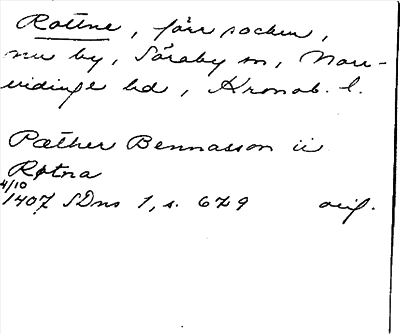 Rottne, förr socken,
nu by, Söraby sn, Norr-
vidinge hd, Kronob. l.
Pæther Bennasson ii
Røtna
4/10
1407 SDns 1, s. 679 orig.